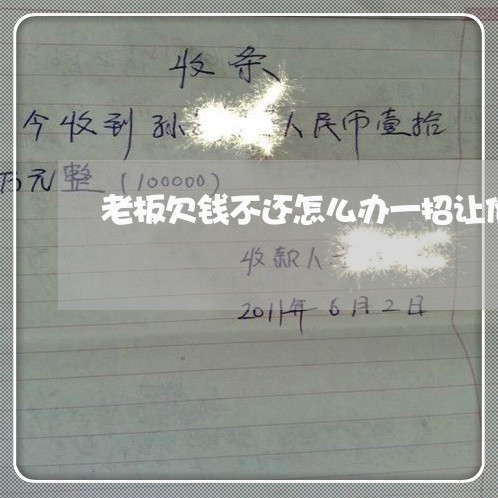 收条
今收到孙 人民币壹拾
万元整（100000）
老板欠钱不还怎么办一招让
收款人
2011年6月2日